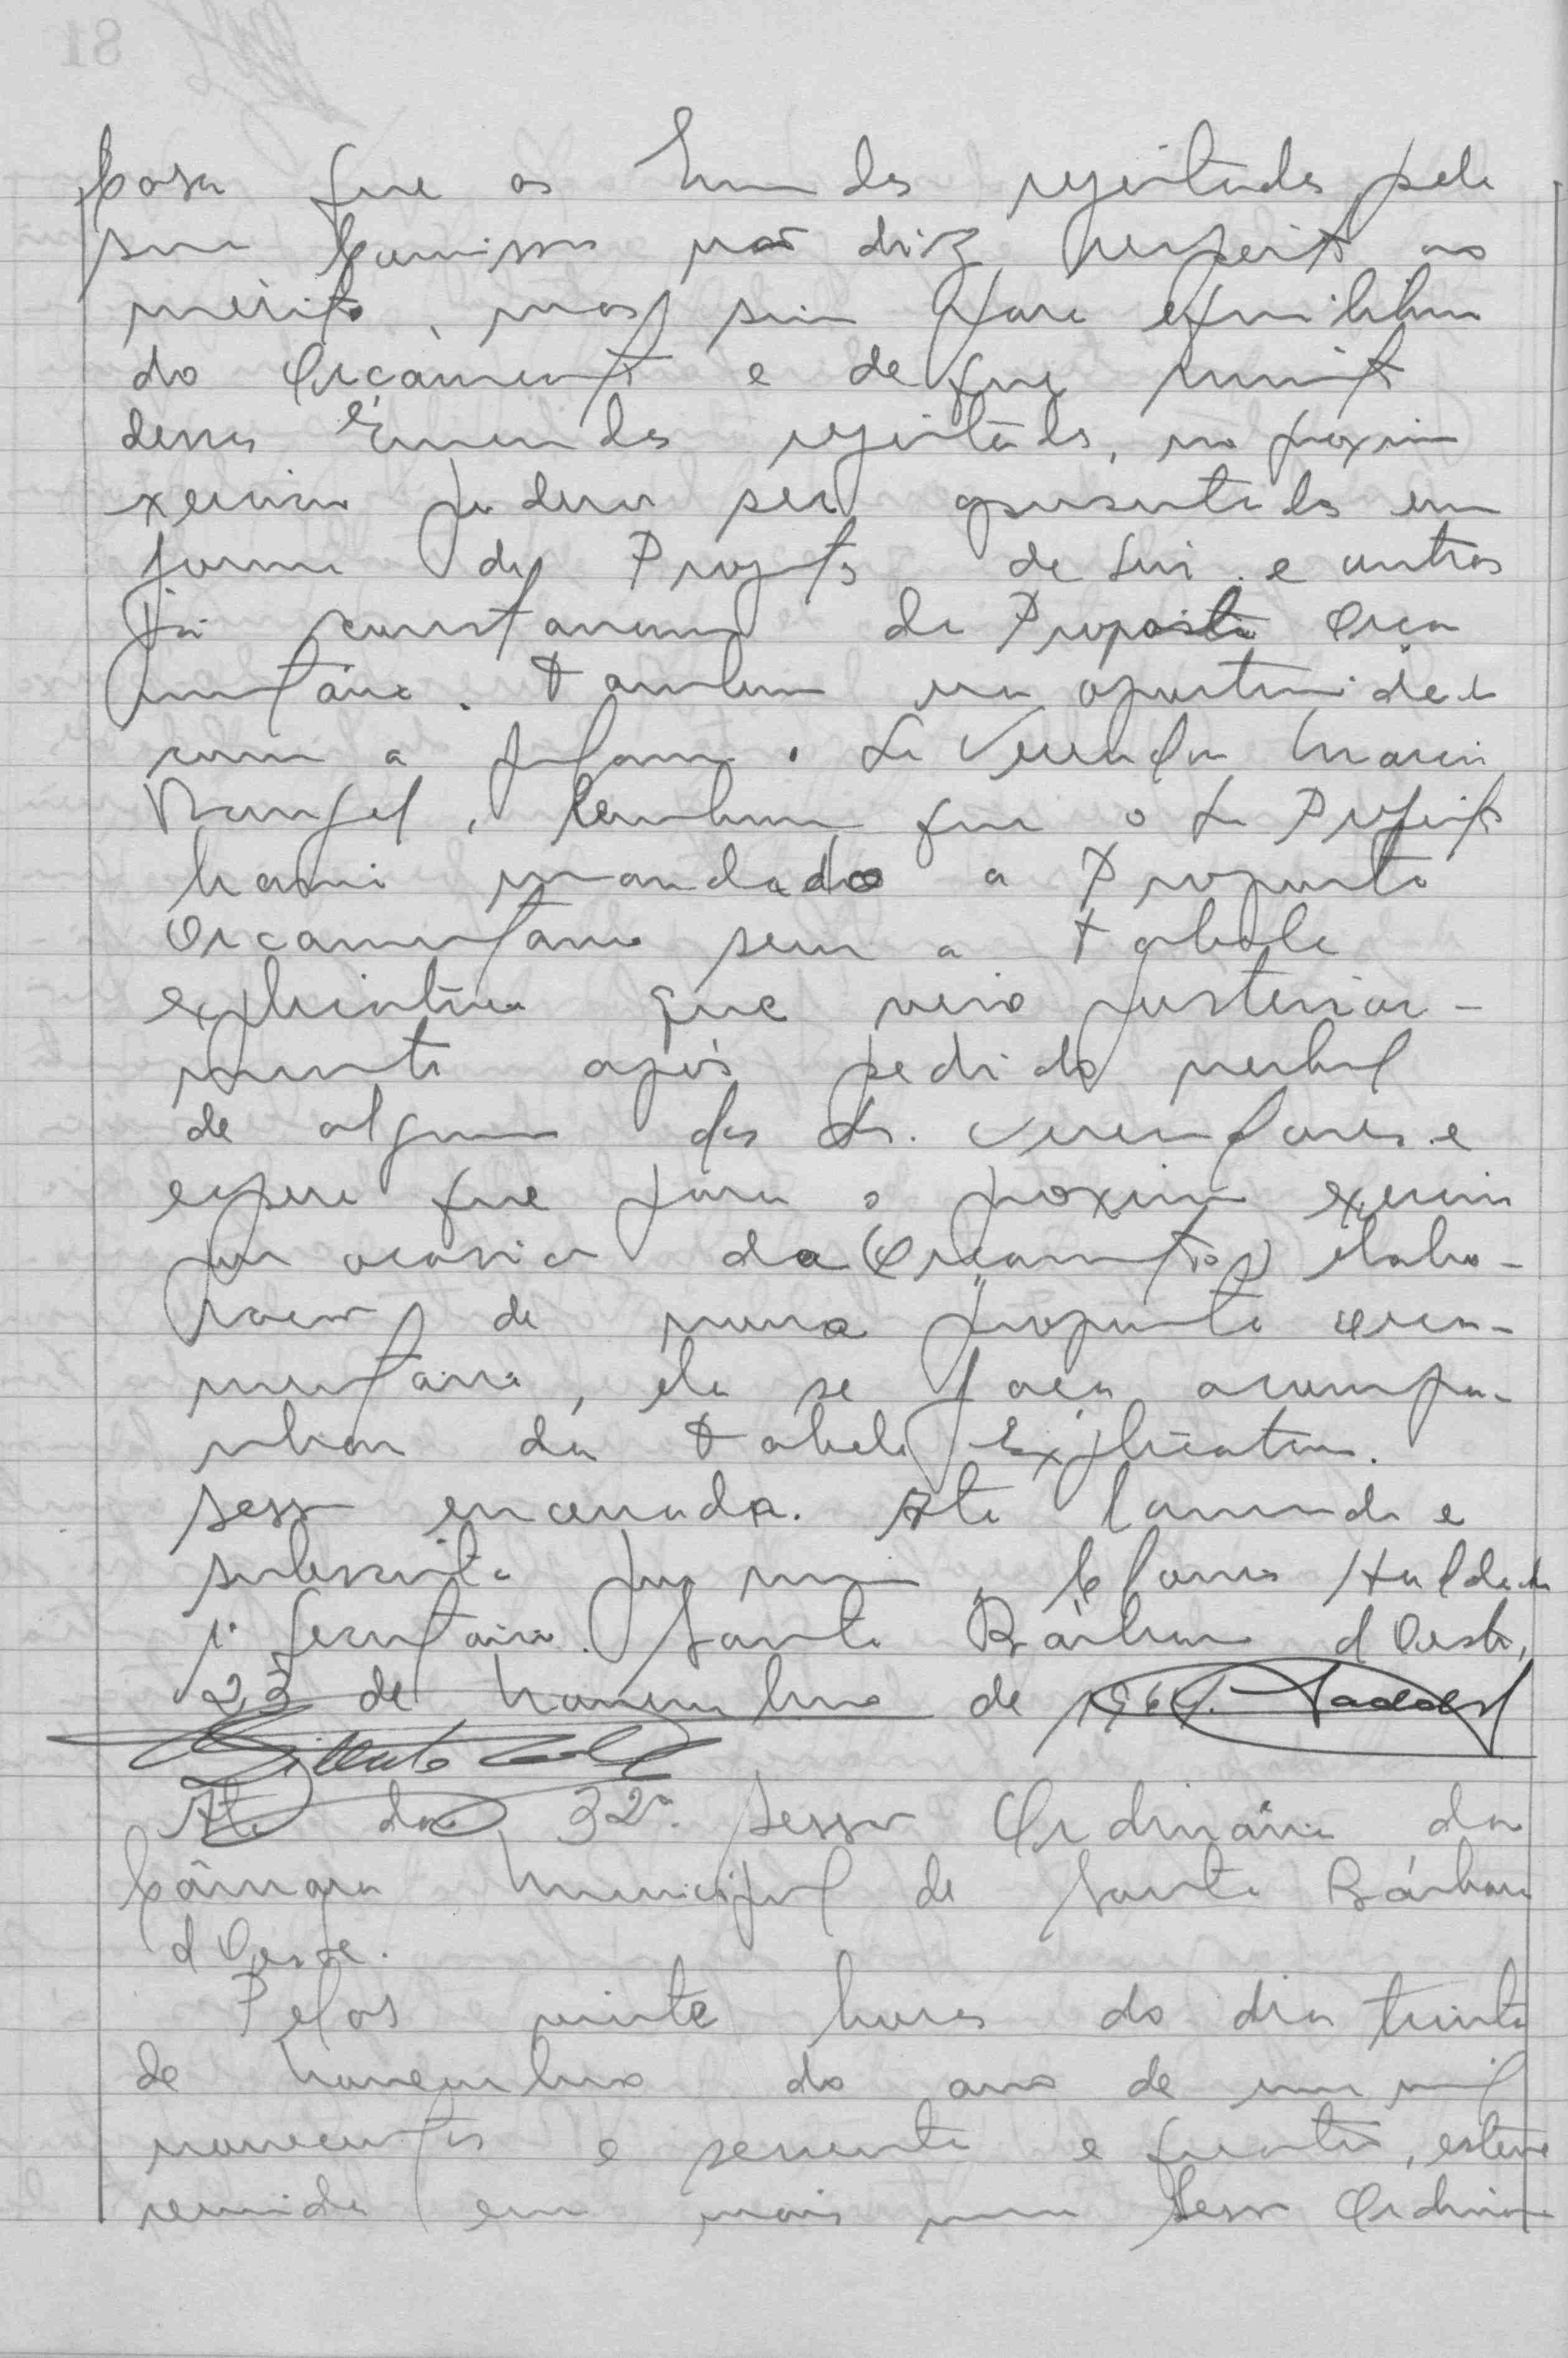 Casa que as Emendas rejeitadas pela
sua Comissão não diz respeito ao
mérito, mas sim para equilibrio
do Orçamento e de que muitas
dessas Emendas rejeitadas, no proximo
exercicio poderão ser apresentadas em
forma de Projetos de Lei e outras
já constavam da Proposta Orça
mentária. Tambem na oportunidade
com a palavra o Sr Vereador
Rangel, lembrou que o Sr Prefeito
havia mandado a Proposta
Orçamentaria sem a tabela
explicativa que veio posterior-
mente após pedido verbal
de alguns dos Srs. Vereadores e
espera que para o proximo exercicio
por ocasião da (Orçamentos) elabo-
ração de nova proposta orça-
mentária, ela se faça acompa-
nhar da tabela Explicativa.
Sessão encerrada. Ata lavrada e
subscrita por mim,
1º Secretario. Santa Bárbara d Oeste,
23 de Novembro de 1964.
Ata da 32ª. Sessão Ordinária da
Câmara Municipal de Santa Bárbara
d Oeste.
Pelas vinte horas do dia trinta
de Novembro do ano de um mil
novecentos e sessenta e quatro, esteve
reunida em mais uma Sessão Ordinária
81